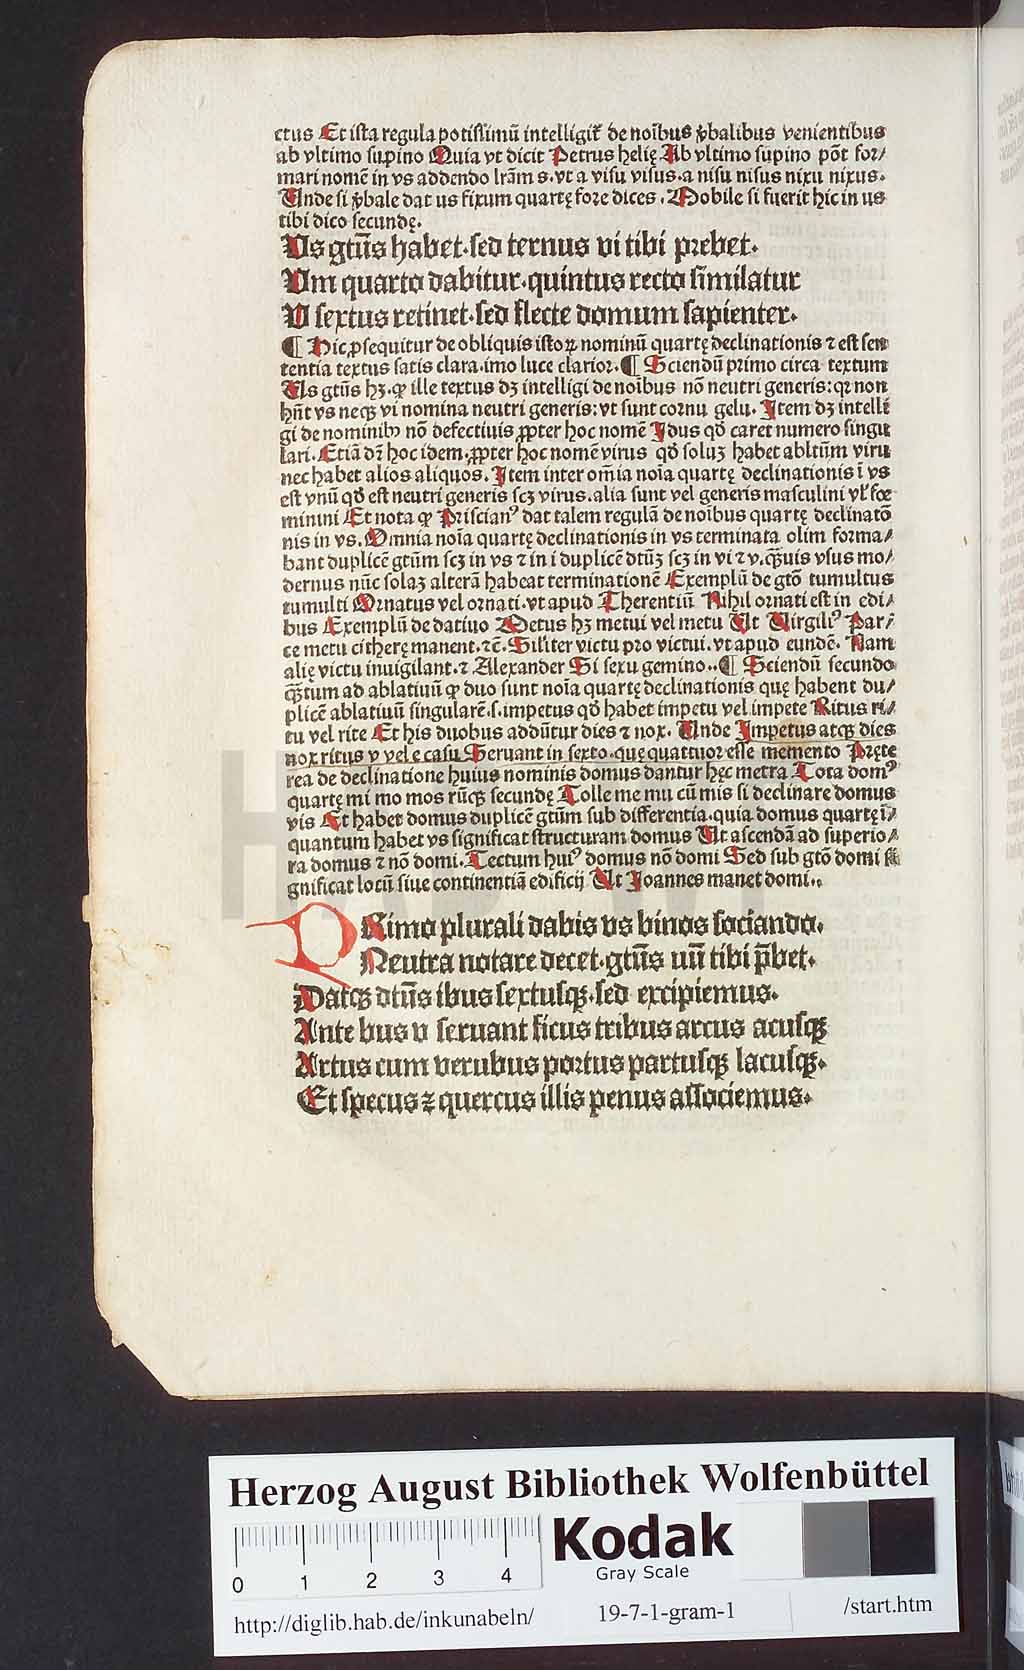 ctus Et ista regula potissimū intelligit̄ de noībus v̄balibus venientibus
ab vltimo supino Quia vt dicit Petrus helię Ab vltimo supino pōt for/
mari nomē in vs addendo lrām s. vt a visu visus. a nisu nisus nixu nixus.
Unde si v̄bale dat us fixum quartę fore dices. Mobile si fuerit hic in us
tibi dico secundę.
Us gtūs habet. sed ternus vi tibi prebet.
Um quarto dabitur. quintus recto similatur
U sextus retinet. sed flecte domum sapienter.
¶ Hic ꝓsequitur de obliquis istoꝝ nominū quartę declinationis ⁊ est sen
tentia textus satis clara. imo luce clarior. ¶ Sciendū primo circa textum
Us gtūs hꝫ. ꝙ ille textus dꝫ intelligi de noībus nō neutri generis: qꝛ non
hn̄t vs neqꝫ vi nomina neutri generis: vt sunt cornu gelu. Item dꝫ intelli
gi de nominibꝰ nō defectiuis ꝓpter hoc nomē Idus qd̄ caret numero singu
lari. Etiā dꝛ̄ hoc idem ꝓpter hoc nomē virus qd̄ soluꝫ habet abltīum viru
nec habet alios aliquos. Item inter om̄ia noīa quartę declinationis ī vs
est vnū qd̄ est neutri generis scꝫ virus. alia sunt vel generis masculini vl̓ fœ
minini Et nota ꝙ Priscianꝰ dat talem regulā de noībus quartę declinatō
nis in vs. Omnia noīa quartę declinationis in vs terminata olim forma/
bant duplicē gtūm scꝫ in vs ⁊ in i duplicē dtūꝫ scꝫ in vi ⁊ v. qꝫ̄uis vsus mo/
dernus nūc solaꝫ alterā habeat terminationē Exemplū de gtō tumultus
tumulti Ornatus vel ornati. vt apud Therentiū Nihil ornati est in edi/
bus Exemplū de datiuo Metus hꝫ metui vel metu Ut Virgiliꝰ Par/
ce metu citherę manent. ⁊c̄. Silīter victu pro victui. vt apud eundē. Nam
alię victu inuigilant. ⁊ Alexander Si sexu gemino.. ¶ Sciendū secundo
qꝫ̄tum ad ablatiuū ꝙ duo sunt noīa quartę declinationis quę habent du/
plicē ablatiuū singularē. s. impetus qd̄ habet impetu vel impete Ritus ri/
tu vel rite Et his duobus addūtur dies ⁊ nox. Unde Impetus atqꝫ dies
nox ritus v vel e casu Seruant in sexto. que quattuor esse memento Pręte
rea de declinatione huius nominis domus dantur hęc metra Tota domꝰ
quartę mi mo mos rūqꝫ secundę Tolle me mu cū mis si declinare domus
vis Et habet domus duplicē gtūm sub differentia. quia domus quartę ī/
quantum habet vs significat structuram domus Ut ascendā ad superio/
ra domus ⁊ nō domi. Tectum huiꝰ domus nō domi Sed sub gtō domi si
gnificat locū siue continentiā edificij Ut Joannes manet domi..
PRimo plurali dabis vs binos sociando.
Neutra notare decet. gtūs uū tibi p̄bet.
Datqꝫ dtūs ibus sextusqꝫ. sed excipiemus.
Ante bus v seruant ficus tribus arcus acusqꝫ
Artus cum verubus portus partusqꝫ lacusqꝫ.
Et specus ⁊ quercus illis penus associemus.
Herzog August Bibliothek Wolfenbüttel
0 1 2 3 4
Kodak
Gray Scale
http://diglib.hab.de/inkunabeln/ 19-7-1-gram-1 /start.htm